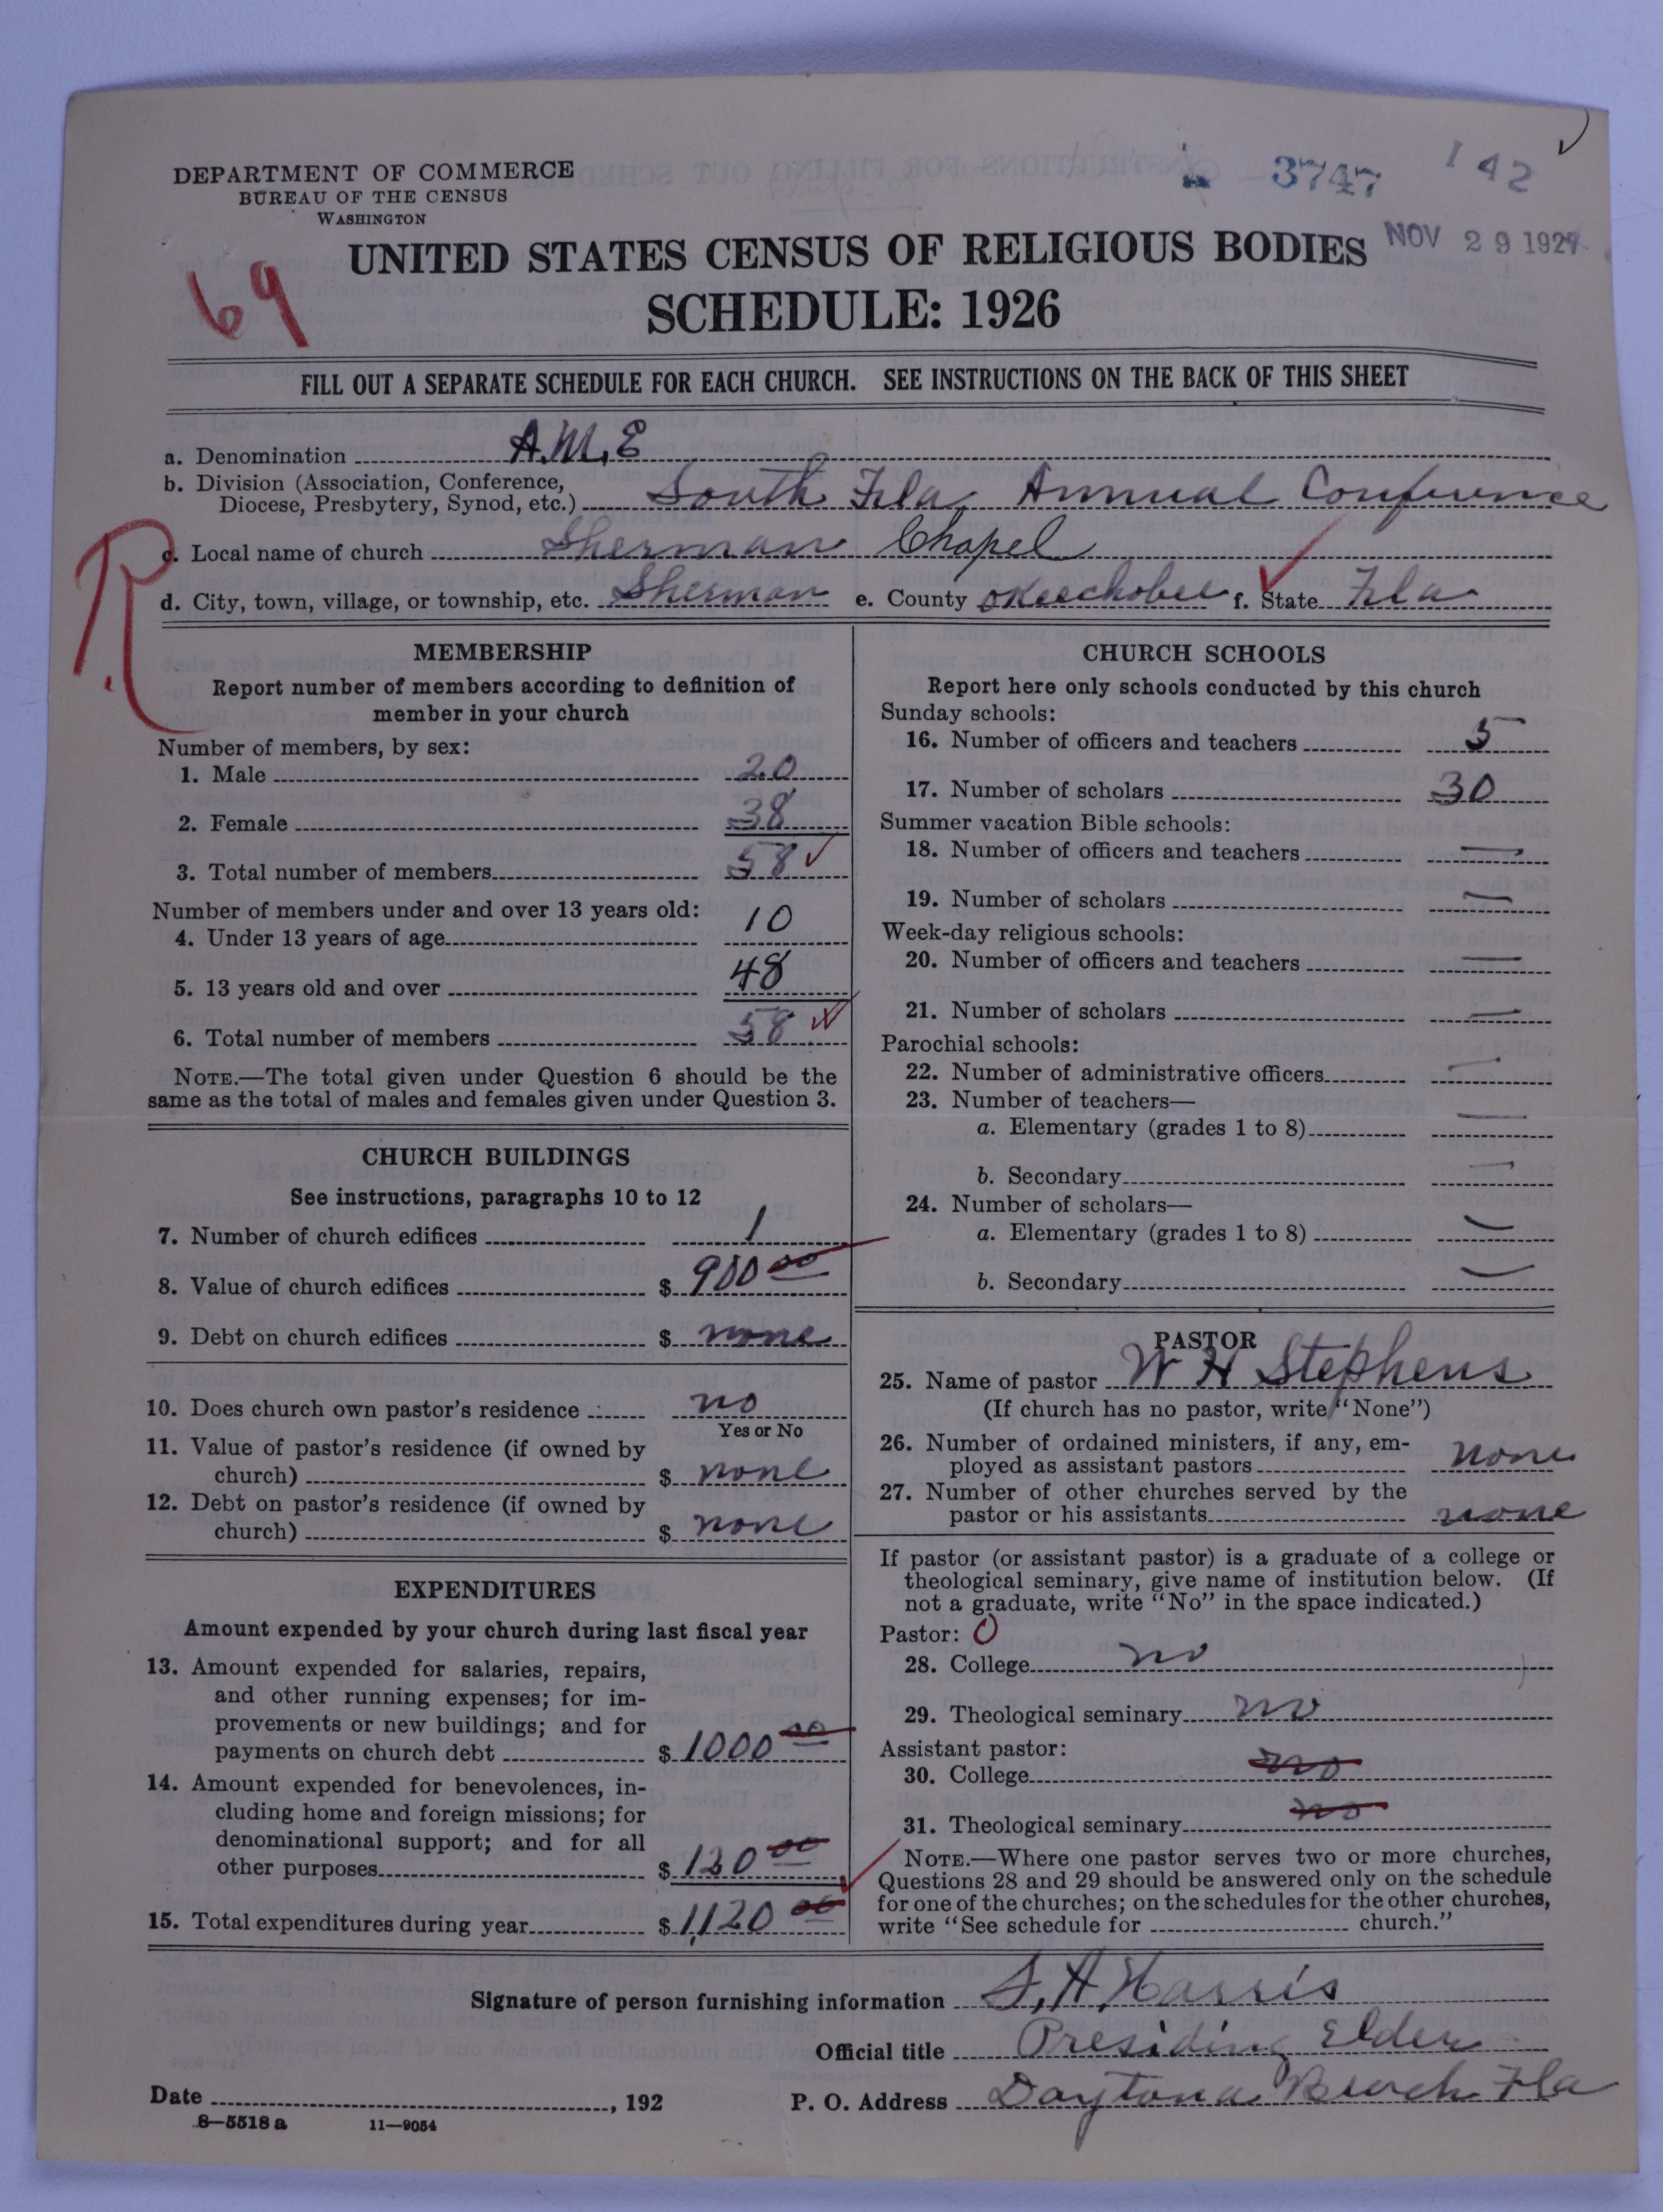 3747 142
DEPARTMENT OF COMMERCE
BUREAU OF THE CENSUS
WASHINGTON
NOV 29 1927
UNITED STATES CENSUS OF RELIGIOUS BODIES
SCHEDULE: 1926
69
FILL OUT A SEPARATE SCHEDULE FOR EACH CHURCH. SEE INSTRUCTIONS ON THE BACK OF THIS SHEET
a. Denomination A.M.E
b. Division (Association, Conference,
Diocese, Presbytery, Synod, etc.) South Fla Annual Conference
R
c. Local name of church Sherman Chapel
d. City, town, village, or township, etc. Sherman e. County Okeechobee f. State Fla
MEMBERSHIP
Report number of members according to definition of
member in your church
Number of members, by sex:
1. Male 20
2. Female 38
3. Total number of members 58
Number of members under and over 13 years old:
4. Under 13 years of age 10
5. 13 years old and over 48
6. Total number of members 58
NOTE.—The total given under Question 6 should be the
same as the total of males and females given under Question 3.
CHURCH BUILDINGS
See instructions, paragraphs 10 to 12
7. Number of church edifices 1
8. Value of church edifices $ 900 00
9. Debt on church edifices $ none
10. Does church own pastor's residence no
Yes or No
11. Value of pastor's residence (if owned by
church) $ none
12. Debt on pastor's residence (if owned by
church) $ none
EXPENDITURES
Amount expended by your church during last fiscal year
13. Amount expended for salaries, repairs,
and other running expenses; for im-
provements or new buildings; and for
payments on church debt $ 1000 00
14. Amount expended for benevolences, in-
cluding home and foreign missions; for
denominational support; and for all
other purposes $ 120 00
15. Total expenditures during year $ 1,120 00
CHURCH SCHOOLS
Report here only schools conducted by this church
Sunday schools:
16. Number of officers and teachers 5
17. Number of scholars 30
Summer vacation Bible schools:
18. Number of officers and teachers —
19. Number of scholars —
Week-day religious schools:
20. Number of officers and teachers —
21. Number of scholars —
Parochial schools:
22. Number of administrative officers —
23. Number of teachers—
a. Elementary (grades 1 to 8) —
b. Secondary —
24. Number of scholars—
a. Elementary (grades 1 to 8) —
b. Secondary —
PASTOR
25. Name of pastor W H Stephens
(If church has no pastor, write "None")
26. Number of ordained ministers, if any, em-
ployed as assistant pastors none
27. Number of other churches served by the
pastor or his assistants none
If pastor (or assistant pastor) is a graduate of a college or
theological seminary, give name of institution below. (If
not a graduate, write "No" in the space indicated.)
Pastor: 0
28. College no
29. Theological seminary no
Assistant pastor:
30. College no
31. Theological seminary no
NOTE.—Where one pastor serves two or more churches,
Questions 28 and 29 should be answered only on the schedule
for one of the churches; on the schedules for the other churches,
write "See schedule for church."
Signature of person furnishing information S. A. Harris
Official title Presiding Elder
Date , 192 P. O. Address Daytona Beach Fla
8—5518 a 11—9054